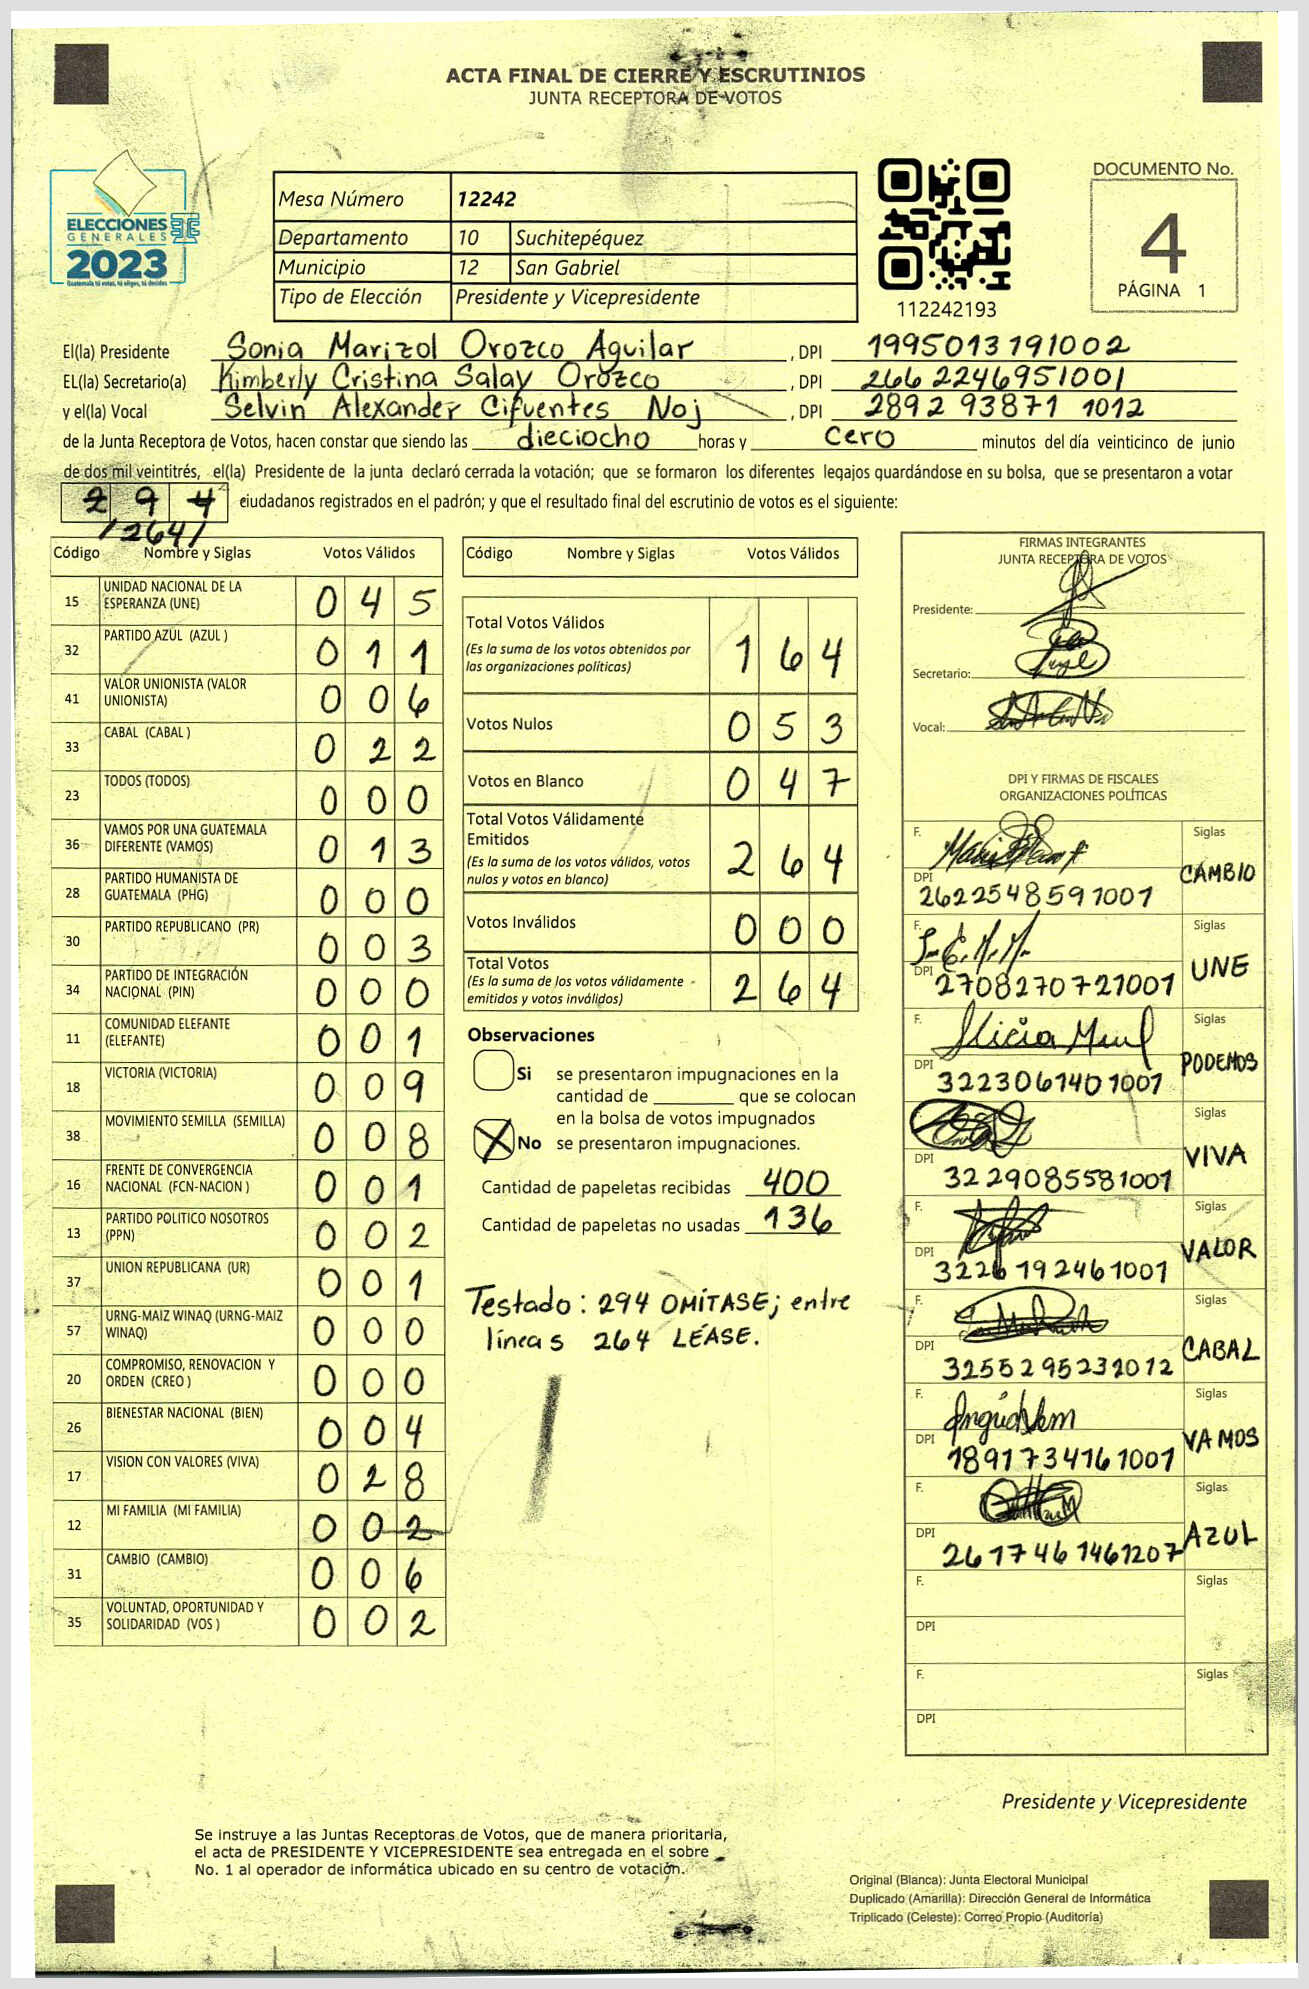 ACTA FINAL DE CIERRE Y ESCRUTINIOS
JUNTA RECEPTORA DE VOTOS
ELECCIONES
GENERALES
2023
Guatemala tú votas, tú eliges, tú decides
Mesa Número 12242
Departamento 10 Suchitepéquez
Municipio 12 San Gabriel
Tipo de Elección Presidente y Vicepresidente
112242193
DOCUMENTO No.
4
PÁGINA 1
El(la) Presidente Sonia Marizol Orozco Aguilar , DPI 1995013191002
EL(la) Secretario(a) Kimberly Cristina Salay Orozco , DPI 2662246951001
y el(la) Vocal Selvin Alexander Cifuentes Noj , DPI 2892 93871 1012
de la Junta Receptora de Votos, hacen constar que siendo las dieciocho horas y cero minutos del día veinticinco de junio
de dos mil veintitrés, el(la) Presidente de la junta declaró cerrada la votación; que se formaron los diferentes legajos guardándose en su bolsa, que se presentaron a votar
2 9 4 ciudadanos registrados en el padrón; y que el resultado final del escrutinio de votos es el siguiente:
/264/
Código Nombre y Siglas Votos Válidos
15 UNIDAD NACIONAL DE LA ESPERANZA (UNE) 0 4 5
32 PARTIDO AZUL (AZUL ) 0 1 1
41 VALOR UNIONISTA (VALOR UNIONISTA) 0 0 6
33 CABAL (CABAL ) 0 2 2
23 TODOS (TODOS) 0 0 0
36 VAMOS POR UNA GUATEMALA DIFERENTE (VAMOS) 0 1 3
28 PARTIDO HUMANISTA DE GUATEMALA (PHG) 0 0 0
30 PARTIDO REPUBLICANO (PR) 0 0 3
34 PARTIDO DE INTEGRACIÓN NACIONAL (PIN) 0 0 0
11 COMUNIDAD ELEFANTE (ELEFANTE) 0 0 1
18 VICTORIA (VICTORIA) 0 0 9
38 MOVIMIENTO SEMILLA (SEMILLA) 0 0 8
16 FRENTE DE CONVERGENCIA NACIONAL (FCN-NACION ) 0 0 1
13 PARTIDO POLITICO NOSOTROS (PPN) 0 0 2
37 UNION REPUBLICANA (UR) 0 0 1
57 URNG-MAIZ WINAQ (URNG-MAIZ WINAQ) 0 0 0
20 COMPROMISO, RENOVACION Y ORDEN (CREO ) 0 0 0
26 BIENESTAR NACIONAL (BIEN) 0 0 4
17 VISION CON VALORES (VIVA) 0 2 8
12 MI FAMILIA (MI FAMILIA) 0 0 2
31 CAMBIO (CAMBIO) 0 0 6
35 VOLUNTAD, OPORTUNIDAD Y SOLIDARIDAD (VOS ) 0 0 2
Código Nombre y Siglas Votos Válidos
Total Votos Válidos 1 6 4
(Es la suma de los votos obtenidos por
las organizaciones políticas)
Votos Nulos 0 5 3
Votos en Blanco 0 4 7
Total Votos Válidamente
Emitidos 2 6 4
(Es la suma de los votos válidos, votos
nulos y votos en blanco)
Votos Inválidos 0 0 0
Total Votos 2 6 4
(Es la suma de los votos válidamente
emitidos y votos inválidos)
Observaciones
Si se presentaron impugnaciones en la
cantidad de ________ que se colocan
en la bolsa de votos impugnados
No se presentaron impugnaciones.
Cantidad de papeletas recibidas 400
Cantidad de papeletas no usadas 136
Testado: 294 OMÍTASE; entre
líneas 264 LÉASE.
FIRMAS INTEGRANTES
JUNTA RECEPTORA DE VOTOS
Presidente:
Secretario:
Vocal:
DPI Y FIRMAS DE FISCALES
ORGANIZACIONES POLÍTICAS
F. Siglas
DPI 2622548591001 CAMBIO
F. Siglas
DPI 2708270721001 UNE
F. Siglas
DPI 3223061401001 PODEMOS
F. Siglas
DPI 3229085581001 VIVA
F. Siglas
DPI 3226192461001 VALOR
F. Siglas
DPI 3255295231012 CABAL
F. Siglas
DPI 1891734161001 VAMOS
F. Siglas
DPI 2617461461207 AZUL
F. Siglas
DPI
F. Siglas
DPI
Presidente y Vicepresidente
Se instruye a las Juntas Receptoras de Votos, que de manera prioritaria,
el acta de PRESIDENTE Y VICEPRESIDENTE sea entregada en el sobre
No. 1 al operador de informática ubicado en su centro de votación.
Original (Blanca): Junta Electoral Municipal
Duplicado (Amarilla): Dirección General de Informática
Triplicado (Celeste): Correo Propio (Auditoría)